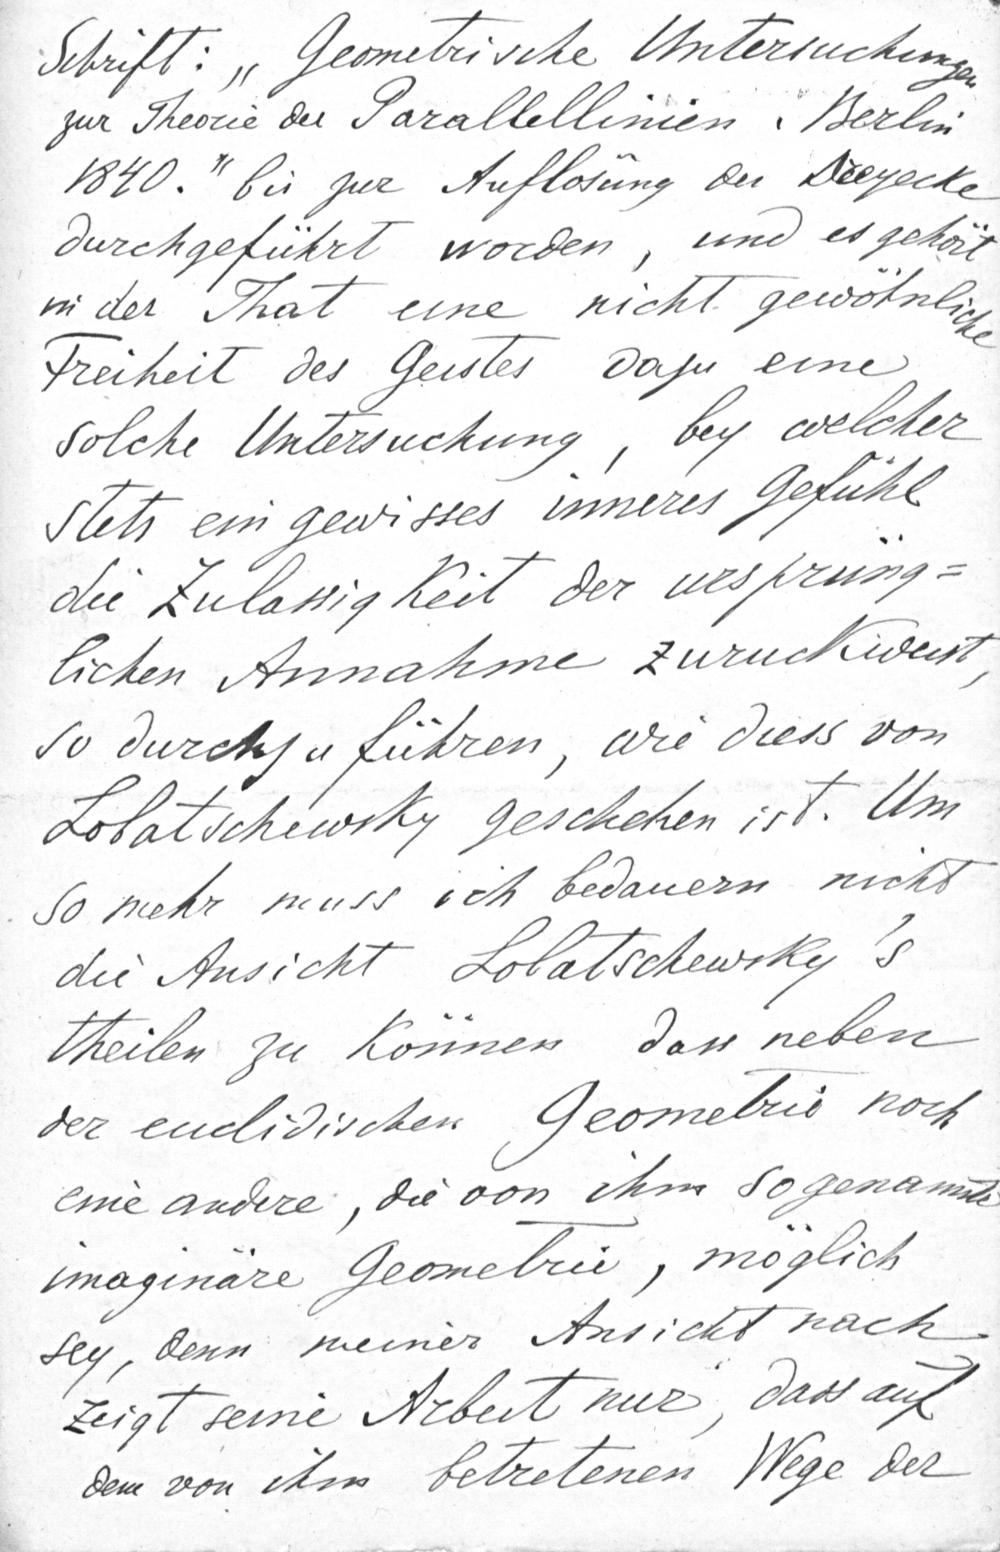 Schrift: „Geometrische Untersuchungen
zur Theorie der Parallellinien. Berlin
1840." bis zur Auflösung der Dreyecke
durchgeführt worden, und es gehört
in der That eine nicht gewöhnliche
Freiheit des Geistes dazu eine
solche Untersuchung, bey welcher
stets ein gewisses inneres Gefühl
die Zulassigkeit der ursprüng=
lichen Annahme zuruckweist,
so durchzuführen, wie diess von
Lobatschewsky geschehen ist. Um
so mehr muss ich bedauern nicht
die Ansicht Lobatschewsky's
theilen zu können dass neben
der euclidischen Geometrie noch
eine andere, die von ihm sogenannte
imaginäre Geometrie, möglich
sey, denn meiner Ansicht nach
zeigt seine Arbeit nur, dass auf
dem von ihm betretenen Wege der